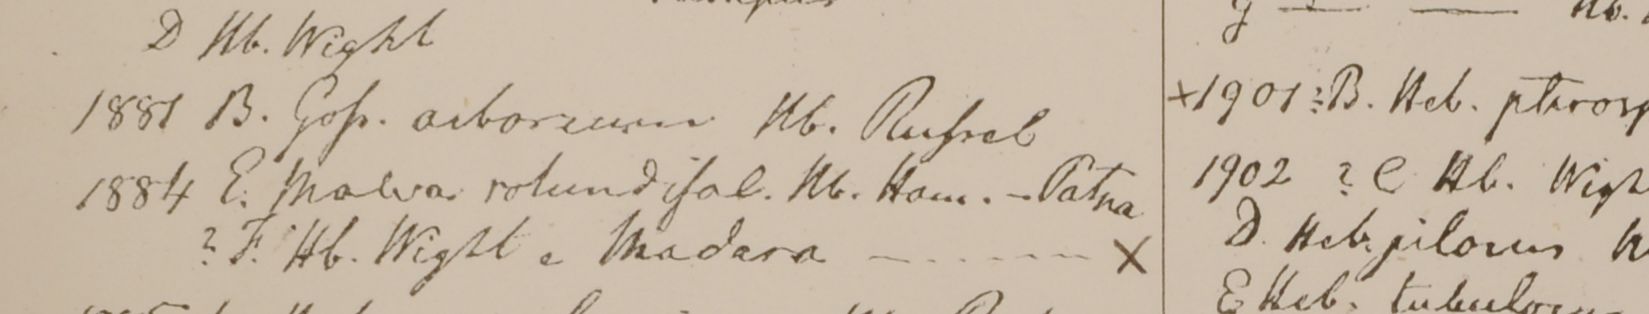 D Hb. Wight
1881 B. Goss. arboreum Hb. Russel
1884 E. Malva rotundifol. Hb. Ham. - Patna
? F. Hb. Wight e Madara - - - - - - X
g — — Hb.
x1901 ? B. Heb.
1902 ? C Hb. Wigh
D. Heb. pilosus
E Heb. tubulosus